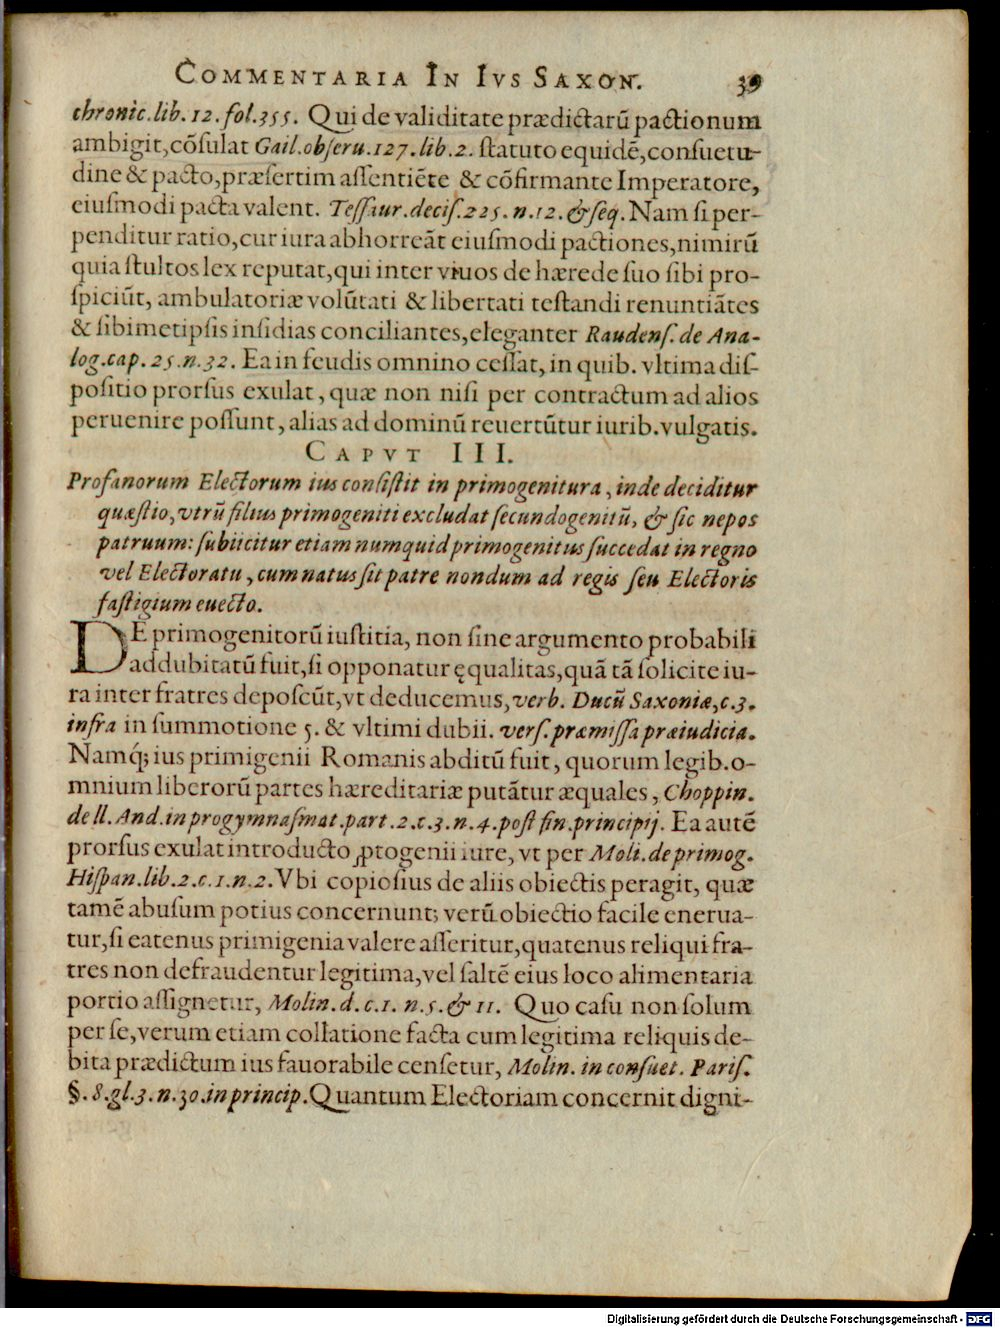 COMMENTARIA IN IVS SAXON. 39
chronic.lib. 12. fol.355. Qui de validitate prædictarū pactionum
ambigit,cōſulat Gail.obſeru.127.lib.2. ſtatuto equidē,conſuetu-
dine & pacto,præſertim aſſentiēte & cōfirmante Imperatore,
eiuſmodi pacta valent. Teſſaur.deciſ.225.n.12.&ſeq. Nam ſi per-
penditur ratio,cur iura abhorreāt eiuſmodi pactiones,nimirū
quia ſtultos lex reputat,qui inter viuos de hærede ſuo ſibi pro-
ſpiciūt, ambulatoriæ volūtati & libertati teſtandi renuntiātes
& ſibimetipſis inſidias conciliantes,eleganter Raudenſ. de Ana-
log.cap. 25.n.32. Ea in feudis omnino ceſſat, in quib. vltima diſ-
poſitio prorſus exulat, quæ non niſi per contractum ad alios
peruenire poſſunt, alias ad dominū reuertūtur iurib.vulgatis.
CAPVT III.
Profanorum Electorum ius conſiſtit in primogenitura, inde deciditur
quæſtio,vtrū filius primogeniti excludat ſecundogenitū, & ſic nepos
patruum: ſubiicitur etiam numquid primogenitus ſuccedat in regno
vel Electoratu, cum natus ſit patre nondum ad regis ſeu Electoris
faſtigium euecto.
DE primogenitorū iuſtitia, non ſine argumento probabili
addubitatū fuit,ſi opponatur ęqualitas,quā tā ſolicite iu-
ra inter fratres depoſcūt,vt deducemus,verb. Ducū Saxoniæ,c.3.
infra in ſummotione 5. & vltimi dubii. verſ.præmiſſa præiudicia.
Namq́; ius primigenii Romanis abditū fuit, quorum legib.o-
mnium liberorū partes hæreditariæ putātur æquales, Choppin.
de ll. And.in progymnaſmat.part.2.c.3.n.4.poſt fin.principij. Ea autē
prorſus exulat introducto ꝓtogenii iure, vt per Moli.de primog.
Hiſpan.lib.2.c.1.n.2.Vbi copioſius de aliis obiectis peragit, quæ
tamē abuſum potius concernunt; verū obiectio facile enerua-
tur,ſi eatenus primigenia valere aſſeritur,quatenus reliqui fra-
tres non defraudentur legitima,vel ſaltē eius loco alimentaria
portio aſſignetur, Molin.d.c.1. n.5.& 11. Quo caſu non ſolum
per ſe,verum etiam collatione facta cum legitima reliquis de-
bita prædictum ius fauorabile cenſetur, Molin. in conſuet. Pariſ.
§.8.gl.3.n.30.in princip.Quantum Electoriam concernit digni-
Digitalisierung gefördert durch die Deutsche Forschungsgemeinschaft - DFG